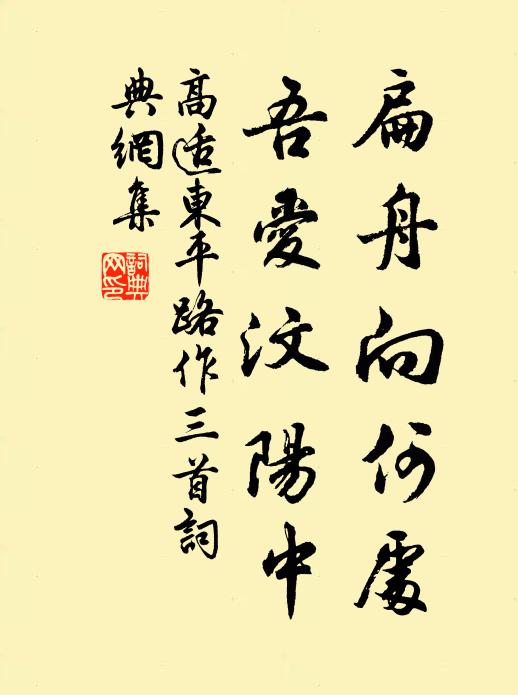 扁舟向何處
吾愛汶陽中
高适東平路作三首詞
典網集
詞典
网印